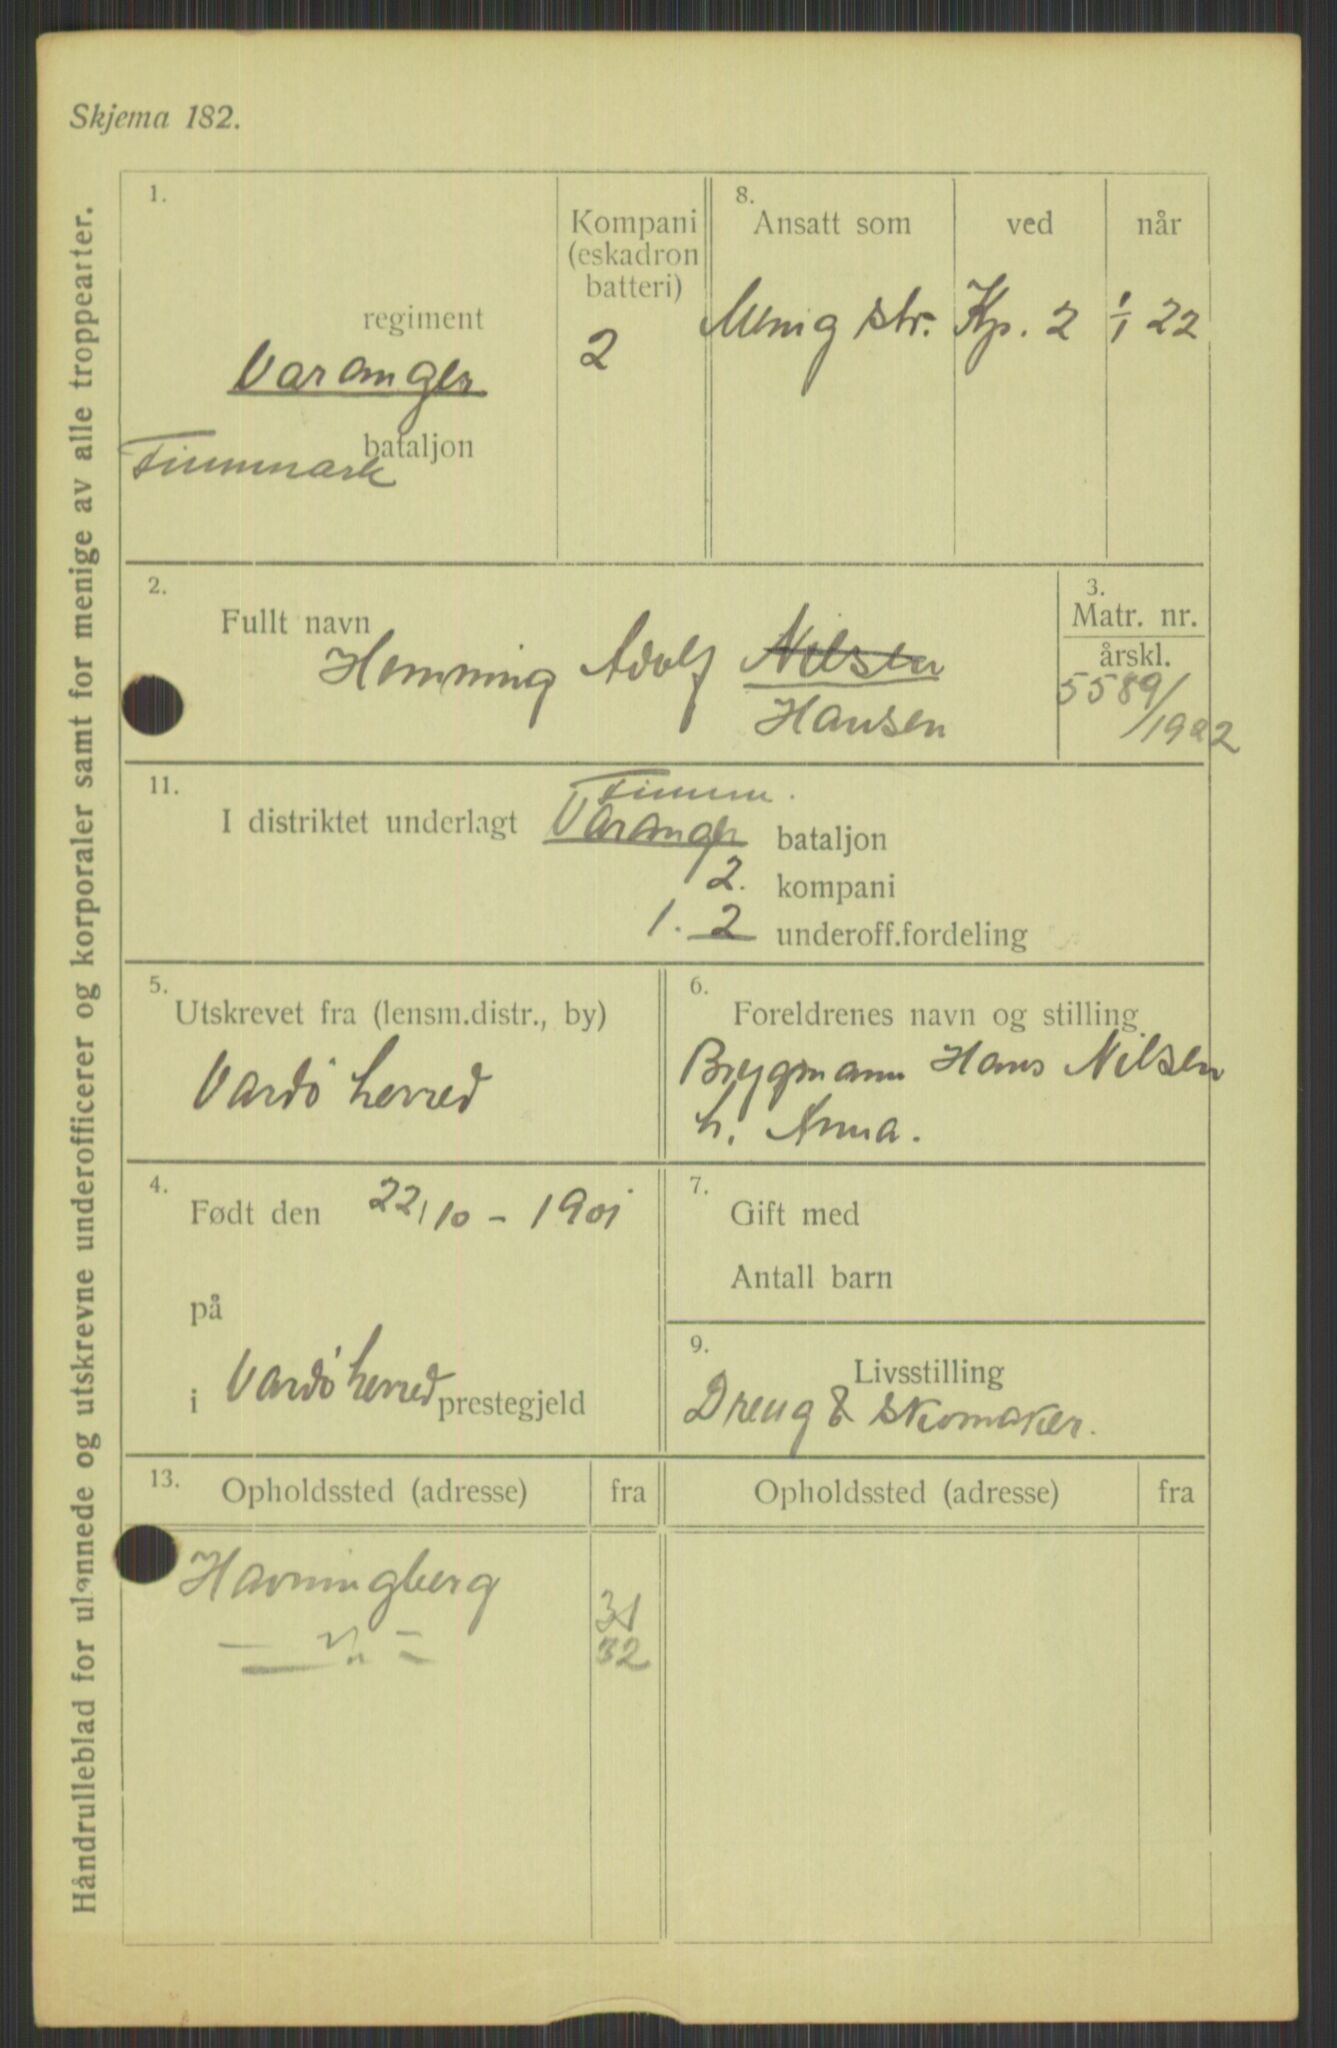 Skjema 182.
Håndrulleblad for ulønnede og utskrevne underofficerer og korporaler samt for menige av alle troppearter.
1.
regiment
Varanger
bataljon
Finnmark
Kompani
(eskadron
batteri)
2
8.
Ansatt som ved når
Menig str. Kp. 2 1/1 22
2.
Fullt navn
Hemming Adolf Nilsen
Hansen
3.
Matr. nr.
årskl.
5589/
/1922
11.
Finnm.
I distriktet underlagt Varanger bataljon
2. kompani
1. 2 underoff.fordeling
5.
Utskrevet fra (lensm.distr., by)
Vardø herred
6.
Foreldrenes navn og stilling
Brygmann Hans Nilsen
h. Anna.
4.
Født den 22/10 - 1901
på
i Vardø herred prestegjeld
7.
Gift med
Antall barn
9.
Livsstilling
Dreng & skomaker.
13.
Opholdssted (adresse) fra Opholdssted (adresse) fra
Havningberg 31
32